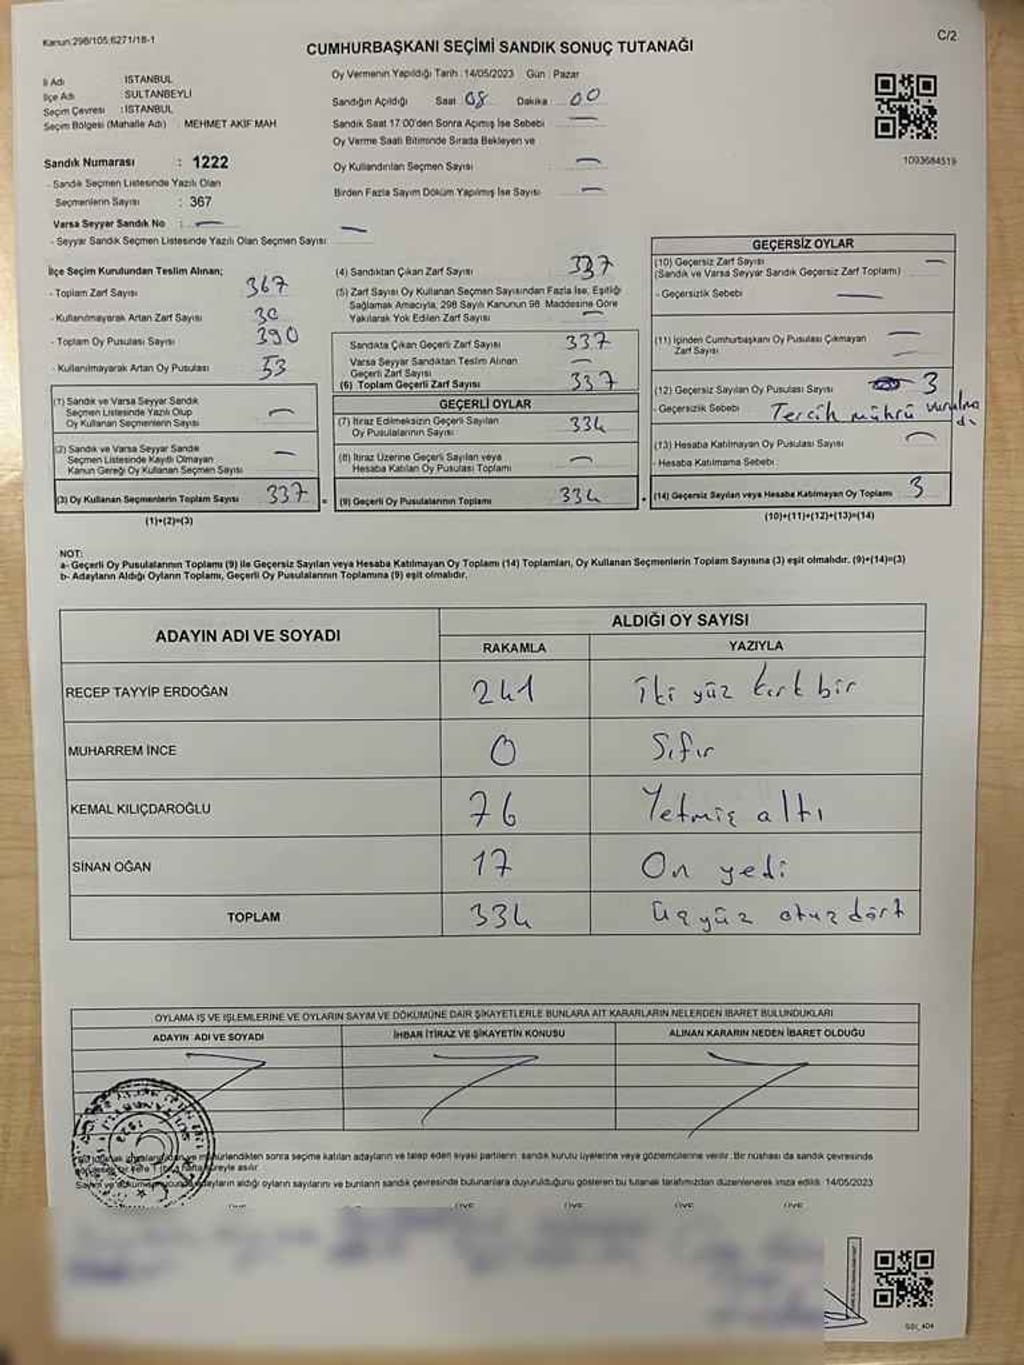 Kanun:298/105:6271/18-1
C/2
CUMHURBAŞKANI SEÇİMİ SANDIK SONUÇ TUTANAĞI
İl Adı : İSTANBUL
İlçe Adı : SULTANBEYLİ
Seçim Çevresi : İSTANBUL
Seçim Bölgesi (Mahalle Adı) : MEHMET AKİF MAH
Sandık Numarası : 1222
- Sandık Seçmen Listesinde Yazılı Olan
Seçmenlerin Sayısı : 367
Varsa Seyyar Sandık No : —
- Seyyar Sandık Seçmen Listesinde Yazılı Olan Seçmen Sayısı: —
Oy Vermenin Yapıldığı Tarih :14/05/2023 Gün : Pazar
Sandığın Açıldığı Saat 08 Dakika 00
Sandık Saat 17:00'den Sonra Açımış İse Sebebi —
Oy Verme Saati Bitiminde Sırada Bekleyen ve
Oy Kullandırılan Seçmen Sayısı : —
Birden Fazla Sayım Döküm Yapılmış İse Sayısı : —
1093684519
İlçe Seçim Kurulundan Teslim Alınan;
- Toplam Zarf Sayısı 367
- Kullanılmayarak Artan Zarf Sayısı 30
- Toplam Oy Pusulası Sayısı 390
- Kullanılmayarak Artan Oy Pusulası 53
(1) Sandık ve Varsa Seyyar Sandık
Seçmen Listesinde Yazılı Olup
Oy Kullanan Seçmenlerin Sayısı —
(2) Sandık ve Varsa Seyyar Sandık
Seçmen Listesinde Kayıtlı Olmayan
Kanun Gereği Oy Kullanan Seçmen Sayısı —
(3) Oy Kullanan Seçmenlerin Toplam Sayısı 337 =
(1)+(2)=(3)
(4) Sandıktan Çıkan Zarf Sayısı 337
(5) Zarf Sayısı Oy Kullanan Seçmen Sayısından Fazla İse, Eşitliği
Sağlamak Amacıyla, 298 Sayılı Kanunun 98. Maddesine Göre
Yakılarak Yok Edilen Zarf Sayısı —
Sandıkta Çıkan Geçerli Zarf Sayısı 337
Varsa Seyyar Sandıktan Teslim Alınan
Geçerli Zarf Sayısı —
(6) Toplam Geçerli Zarf Sayısı 337
GEÇERLİ OYLAR
(7) İtiraz Edilmeksizin Geçerli Sayılan
Oy Pusulalarının Sayısı 334
(8) İtiraz Üzerine Geçerli Sayılan veya
Hesaba Katılan Oy Pusulası Toplamı —
(9) Geçerli Oy Pusulalarının Toplamı 334 +
GEÇERSİZ OYLAR
(10) Geçersiz Zarf Sayısı —
(Sandık ve Varsa Seyyar Sandık Geçersiz Zarf Toplamı)
- Geçersizlik Sebebi : —
(11) İçinden Cumhurbaşkanı Oy Pusulası Çıkmayan —
Zarf Sayısı —
(12) Geçersiz Sayılan Oy Pusulası Sayısı 3
- Geçersizlik Sebebi : Tercih mührü vurulmadı
(13) Hesaba Katılmayan Oy Pusulası Sayısı —
- Hesaba Katılmama Sebebi :
(14) Geçersiz Sayılan veya Hesaba Katılmayan Oy Toplamı 3
(10)+(11)+(12)+(13)=(14)
NOT:
a- Geçerli Oy Pusulalarının Toplamı (9) ile Geçersiz Sayılan veya Hesaba Katılmayan Oy Toplamı (14) Toplamları, Oy Kullanan Seçmenlerin Toplam Sayısına (3) eşit olmalıdır. (9)+(14)=(3)
b- Adayların Aldığı Oyların Toplamı, Geçerli Oy Pusulalarının Toplamına (9) eşit olmalıdır.
ADAYIN ADI VE SOYADI ALDIĞI OY SAYISI
RAKAMLA YAZIYLA
RECEP TAYYİP ERDOĞAN 241 İki yüz kırk bir
MUHARREM İNCE 0 Sıfır
KEMAL KILIÇDAROĞLU 76 Yetmiş altı
SİNAN OĞAN 17 On yedi
TOPLAM 334 üç yüz otuz dört
OYLAMA İŞ VE İŞLEMLERİNE VE OYLARIN SAYIM VE DÖKÜMÜNE DAİR ŞİKAYETLERLE BUNLARA AİT KARARLARIN NELERDEN İBARET BULUNDUKLARI
ADAYIN ADI VE SOYADI İHBAR İTİRAZ VE ŞİKAYETİN KONUSU ALINAN KARARIN NEDEN İBARET OLDUĞU
mühürlendikten sonra seçime katılan adayların ve talep eden siyasi partilerin sandık kurulu üyelerine veya gözlemcilerine verilir. Bir nüshası da sandık çevresinde
hafta süreyle asılır.
adayların aldığı oyların sayılarını ve bunların sandık çevresinde bulunanlara duyurulduğunu gösteren bu tutanak tarafımızdan düzenlenerek imza edildi. 14/05/2023
ÜYE ÜYE ÜYE ÜYE ÜYE